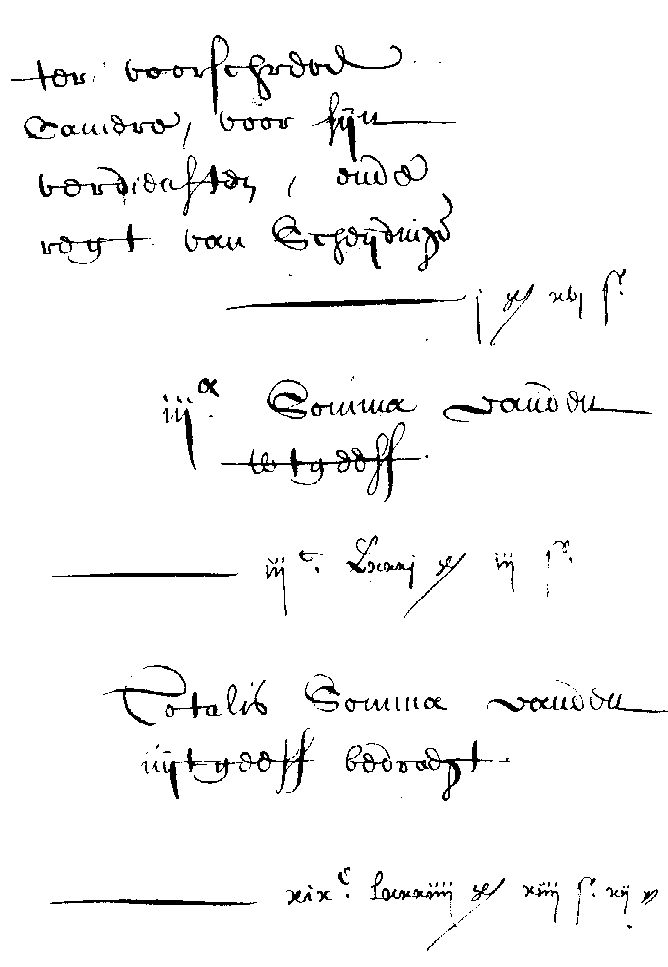 ter voorschreven
Camere, voor sijn
verdiensten, ende
regt van Scheydinge
j £ xvj s.
iij.a Somma vanden
wtgeeff.
iij c. Lxxxj £ iij s.
Totalis Somma vanden
uijtgeeff bedraegt.
xix c. lxxxiiij £ xiiij s. xij